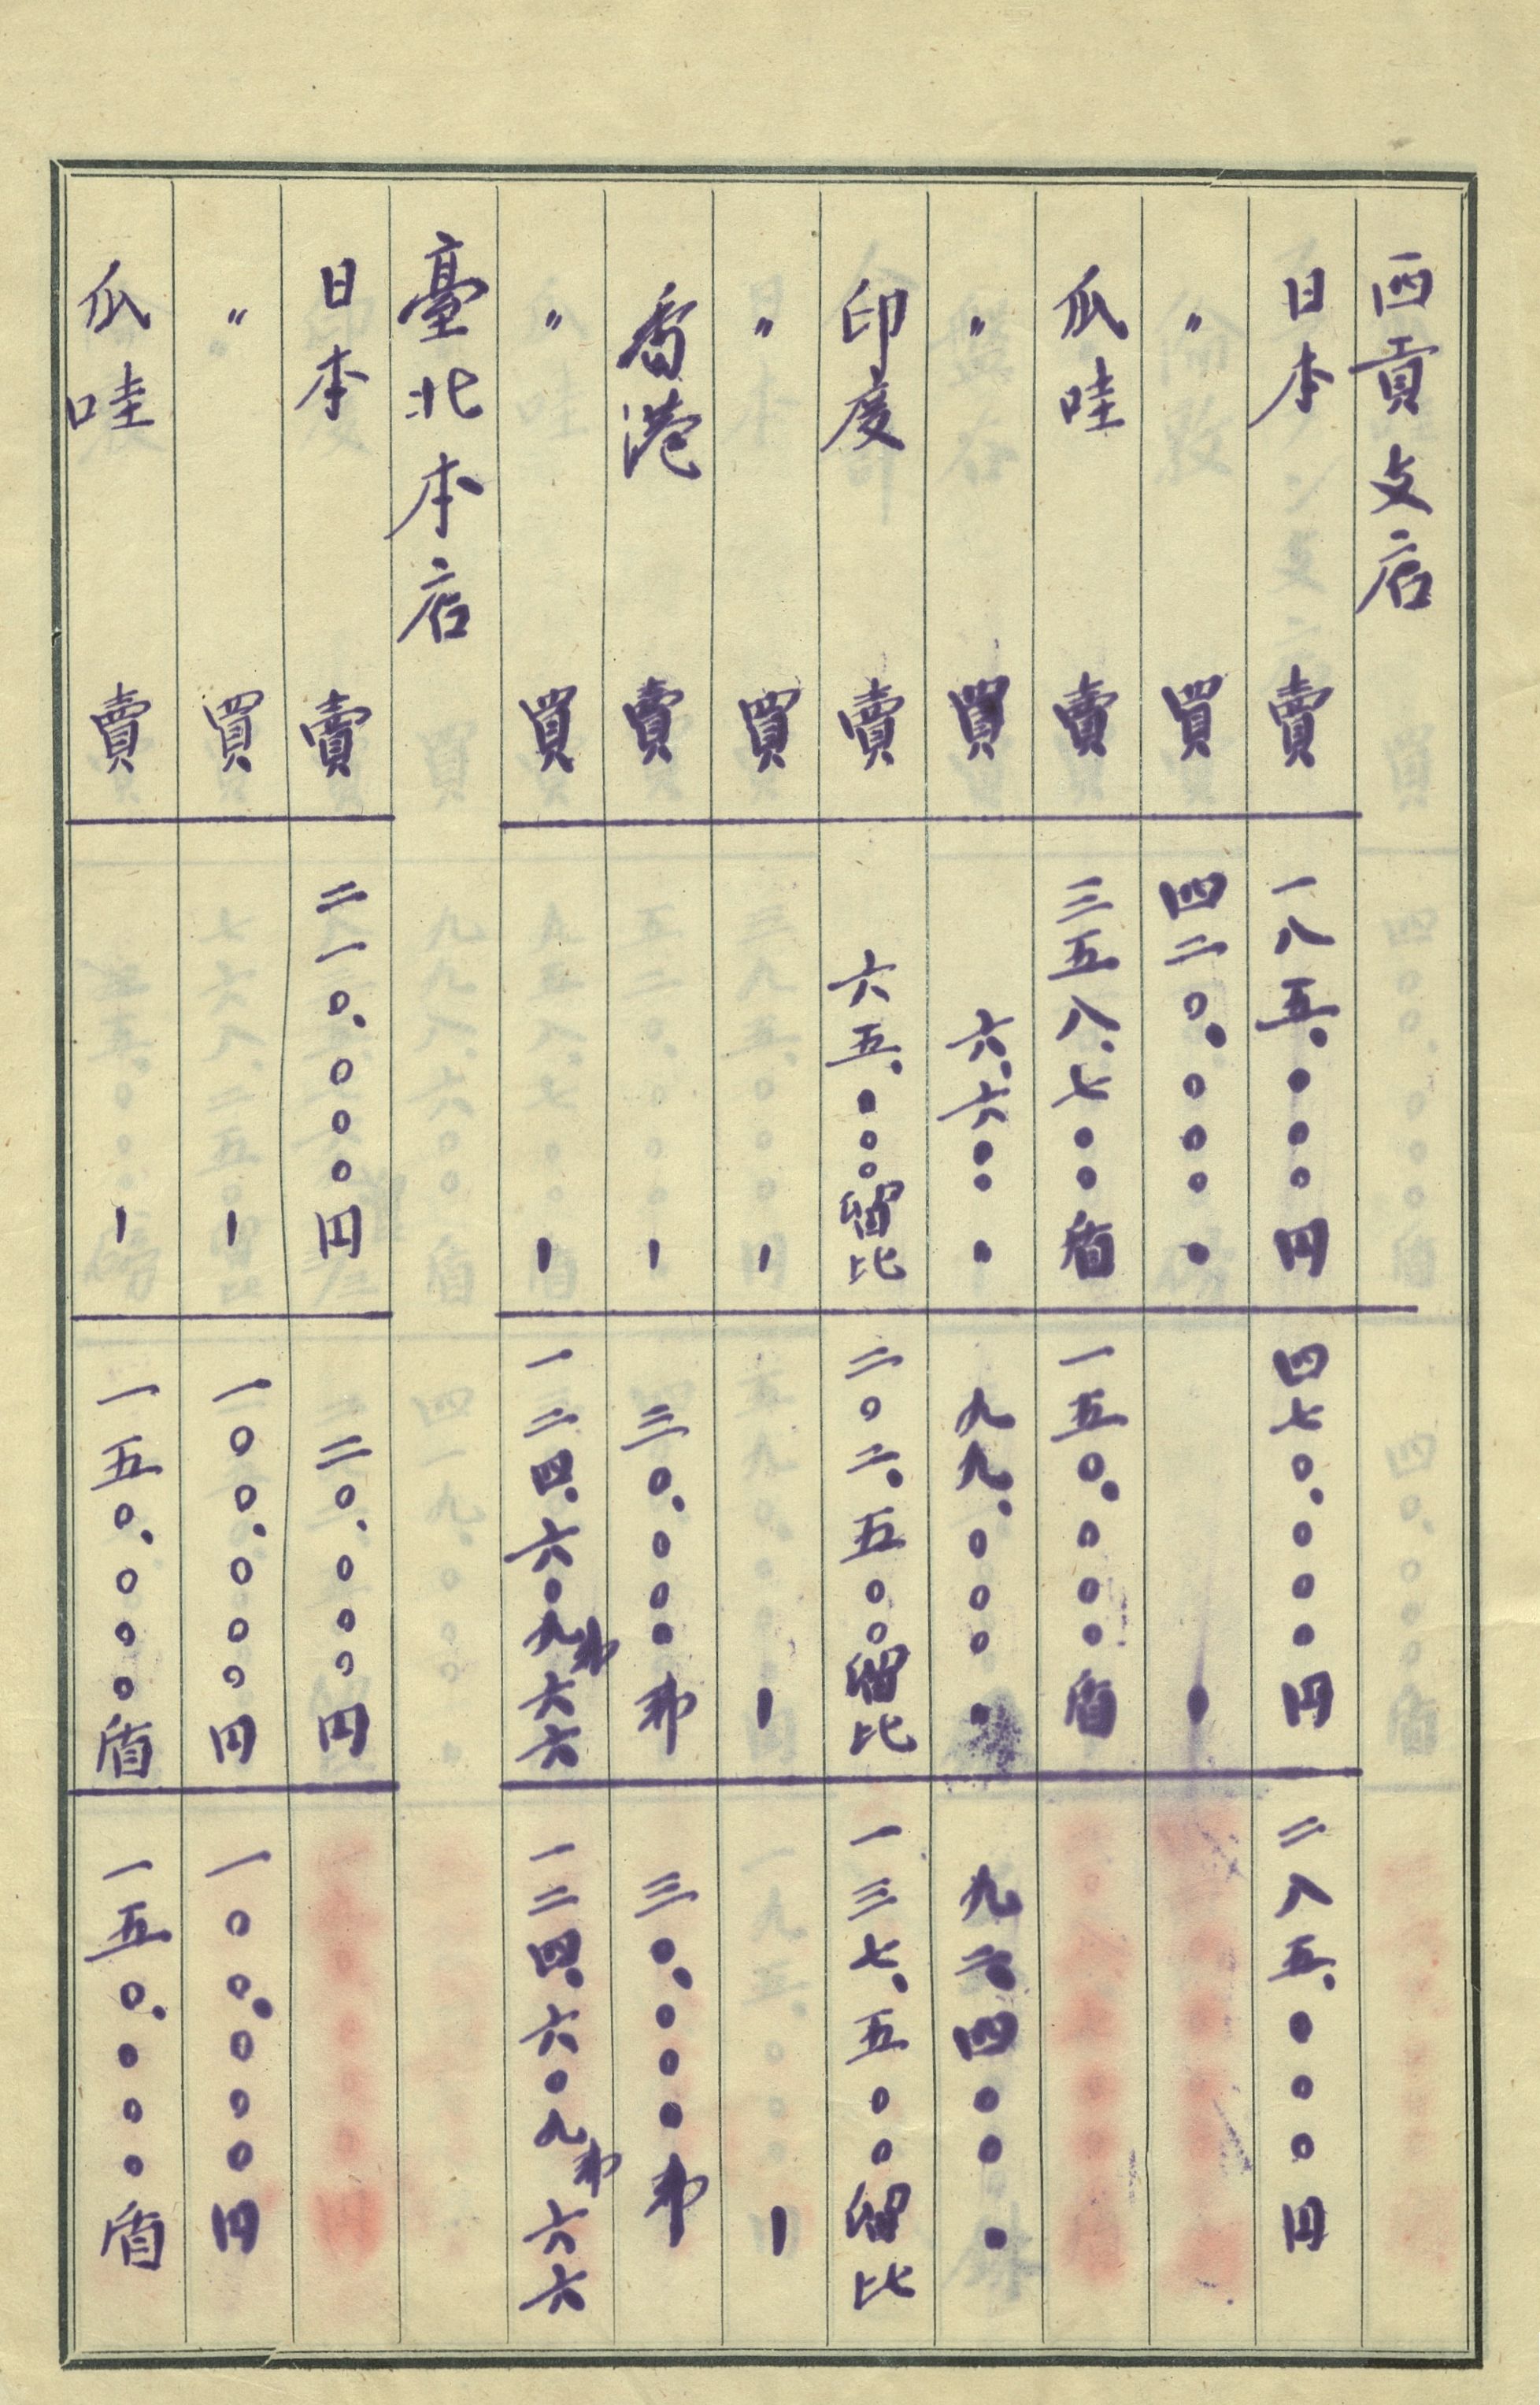 西貢支店
日本 賣 一八五.〇〇〇円 四七〇.〇〇〇円 二八五.〇〇〇円
〃 買 四二〇.〇〇〇・ ・
瓜哇 賣 三五八.七〇〇盾 一五〇.〇〇〇盾
〃 買 六.六〇〇・ 九九.〇〇〇・ 九二.四〇〇・
印度 賣 六五.〇〇〇留比 二〇二.五〇〇留比 一三七.五〇〇留比
〃 買 ー ー ー
香港 賣 ー 三〇.〇〇〇弗 三〇.〇〇〇弗
〃 買 ー 一二四.六〇九弗六六 一二四.六〇九弗六六
臺北本店
日本 賣 二一〇.〇〇〇円 二〇.〇〇〇円
〃 買 ー 一〇〇.〇〇〇円 一〇〇.〇〇〇円
瓜哇 賣 ー 一五〇.〇〇〇盾 一五〇.〇〇〇盾